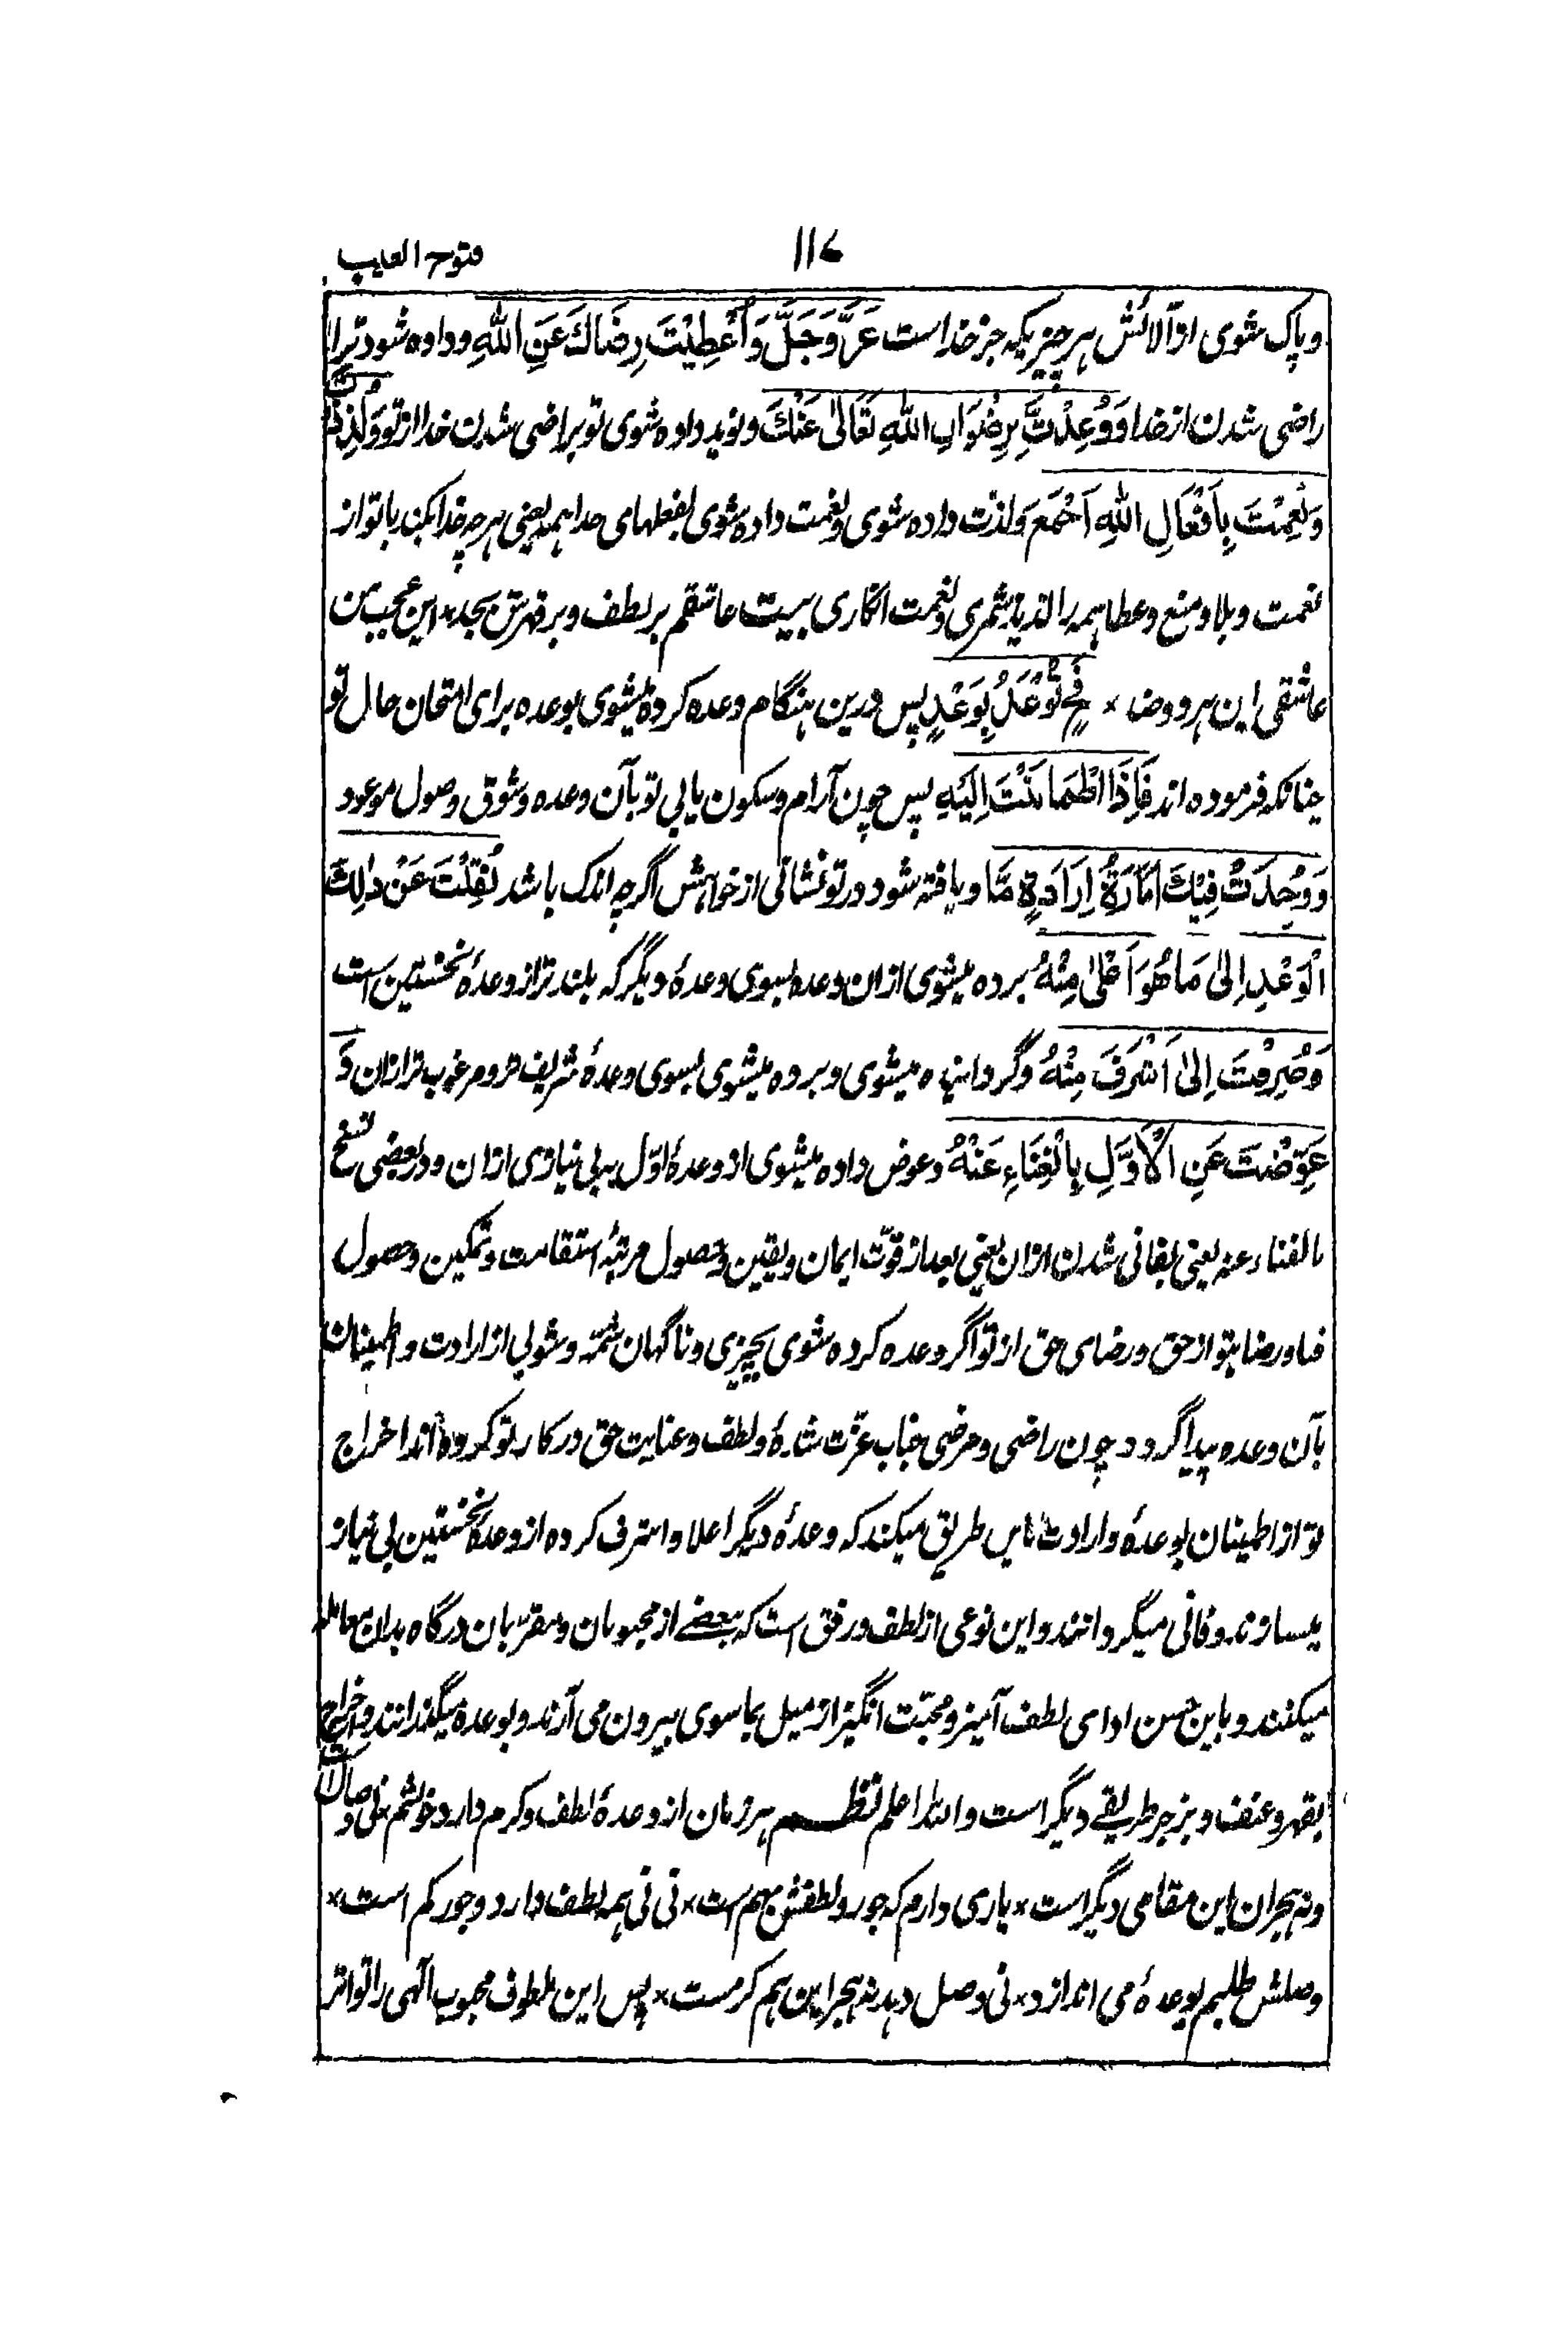 ۱۱۷ فتوح الغیب
و پاک شوی از آلائش هر چیزیکه جز خداست عَزَّ وَجَلَّ وَاُعْطِیْتَ رِضَاكَ عَنِ اللهِ و داده شود ترا
راضی شدن از خدا وَوُعِدْتَ بِرِضْوَانِ اللهِ تَعَالٰی عَنْكَ و نوید داده شوی تو براضی شدن خدا از تو وَلُذِّذْتَ
وَنُعِمْتَ بِاَفْعَالِ اللهِ اَجْمَعَ و لذت داده شوی و نعمت داده شوی بفعلهای خدا همه یعنی هر چه خدا کند با تو از
نعمت و بلا و منع و عطا همه را لذیذ شمری و نعمت انگاری بیت عاشقم بر لطف و بر قهرش بجد × این عجب من
عاشقی این هر دو ضد × فَحِ تُوْعَدُ بِوَعْدٍ پس درین هنگام وعده کرده میشوی بوعده برای امتحان حال تو
چنانکه فرموده اند فَاِذَا اطْمَانَنْتَ اِلَیْهِ پس چون آرام و سکون یابی تو بآن وعده و شوق وصول موعود
وَوُجِدَتْ فِیْكَ اَمَارَةُ اِرَادَةٍ مَّا و یافته شود در تو نشانی از خواهش اگرچه اندک باشد نُقِلْتَ عَنْ ذٰلِكَ
الْوَعْدِ اِلٰی مَا هُوَ اَعْلٰی مِنْهُ برده میشوی ازان وعده بسوی وعدهٔ دیگر که بلندتر از وعدهٔ نخستین است
وَصُرِفْتَ اِلٰی اَشْرَفَ مِنْهُ و گردانیده میشوی و برده میشوی بسوی وعدهٔ شریف تر و مرغوب تر ازان وَ
عُوِّضْتَ عَنِ الْاَوَّلِ بِالْغِنَاءِ عَنْهُ و عوض داده میشوی از وعدهٔ اوّل به بی نیازی ازان و در بعضی نسخ
بالفناء عنه یعنی بفانی شدن ازان یعنی بعد از قوّت ایمان و یقین و حصول مرتبهٔ استقامت و تمکین و حصول
فنا و رضا بتو از حق و رضای حق از تو اگر وعده کرده شوی بچیزی و ناگهان شمّه و شوبی از ارادت و اطمینان
بآن وعده پیدا گردد چون راضی و مرضی جناب عزّت شدهٔ و لطف و عنایت حق در کار تو کرده اند اخراج
تو از اطمینان بوعده و ارادت باین طریق میکند که وعدهٔ دیگر اعلا و اشرف کرده از وعدهٔ نخستین بی نیاز
میسازند و فانی میگردانند و این نوعی از لطف و رفق است که بعضے از محبوبان و مقرّبان درگاه بدان معامله
میکنند و باین حسن ادای لطف آمیز و محبّت انگیز از میل بماسوی بیرون می آرند و بوعده میگذرانند و اخراج
بقهر و عنف و بزجر طریقے دیگر است والله اعلم نظم هر زمان از وعدهٔ لطف و کرم دارد خوشم × نی وصال
و نه هجران این مقامی دیگر است × یاری دارم که جور و لطفش بهم است × نی نی همه لطف دارد و جور کم است ×
وصلش طلبم بوعدهٔ می اندازد × نی وصل دهد نه هجر این هم کرمست × پس این ملطوف محبوب الٰهی را تواتر